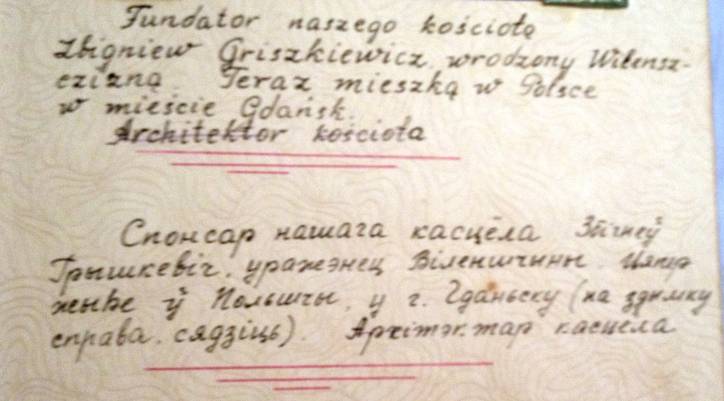 Fundator naszego kościołą
Zbigniew Griszkiewicz, wrodzony Wilensz-
czizną Teraz mieszką w Polsce
w mieście Gdańsk.
Architektor kościoła
Спонсар нашага касцёла Збігнеў
Грышкевіч, ураженец Віленшчыны. Цяпер
жыве ў Польшчы, у г. Гданьску (на здымку
справа, сядзіць). Архітэктар касцела